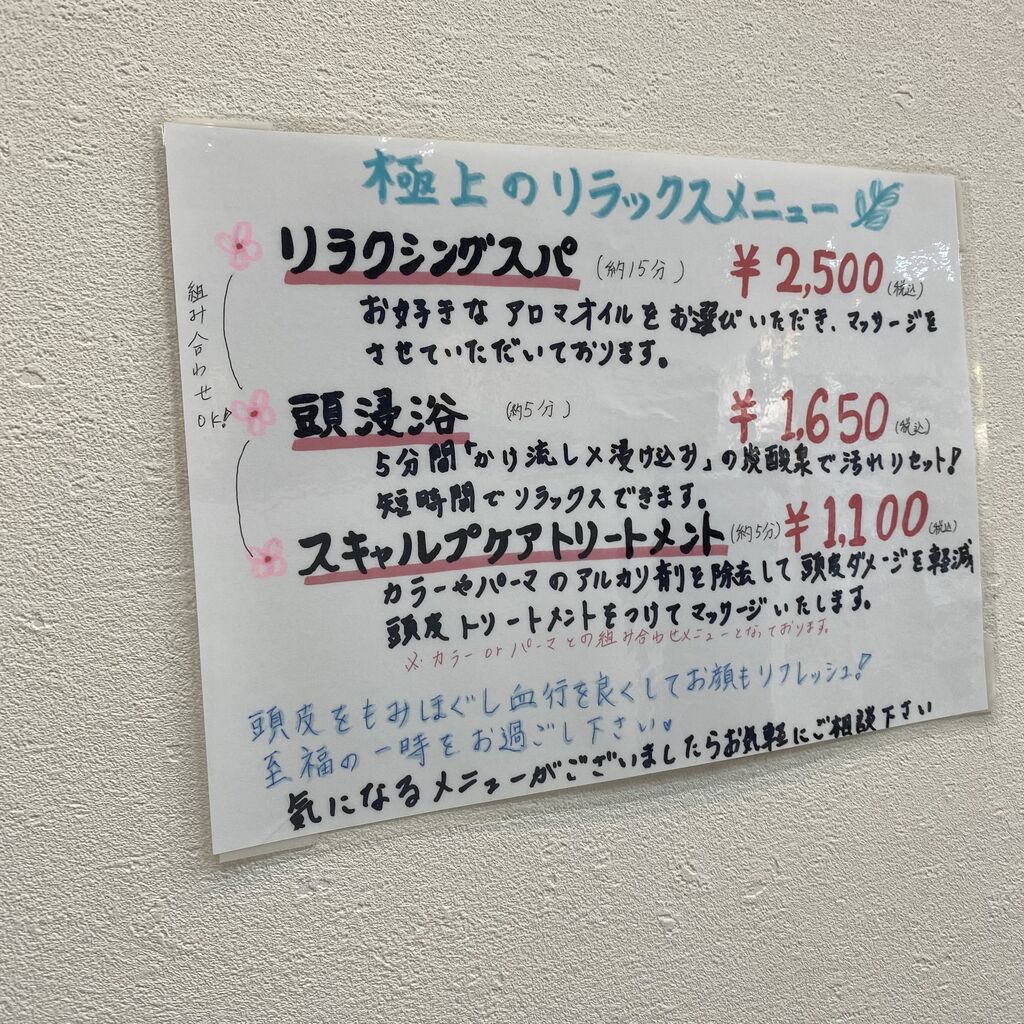 極上のリラックスメニュー
リラクシングスパ (約15分) ¥2,500(税込)
お好きなアロマオイルをお選びいただき、マッサージを
させていただいております。
組み合わせ
OK!
頭浸浴 (約5分) ¥1,650(税込)
5分間「かけ流し×浸け込み」の炭酸泉で汚れリセット!
短時間でリラックスできます。
スキャルプケアトリートメント(約5分) ¥1,100(税込)
カラーやパーマのアルカリ剤を除去して頭皮ダメージを軽減
頭皮トリートメントをつけてマッサージいたします。
※カラーorパーマとの組み合わせメニューとなっております。
頭皮をもみほぐし血行を良くしてお顔もリフレッシュ!
至福の一時をお過ごし下さい♥
気になるメニューがございましたらお気軽にご相談下さい